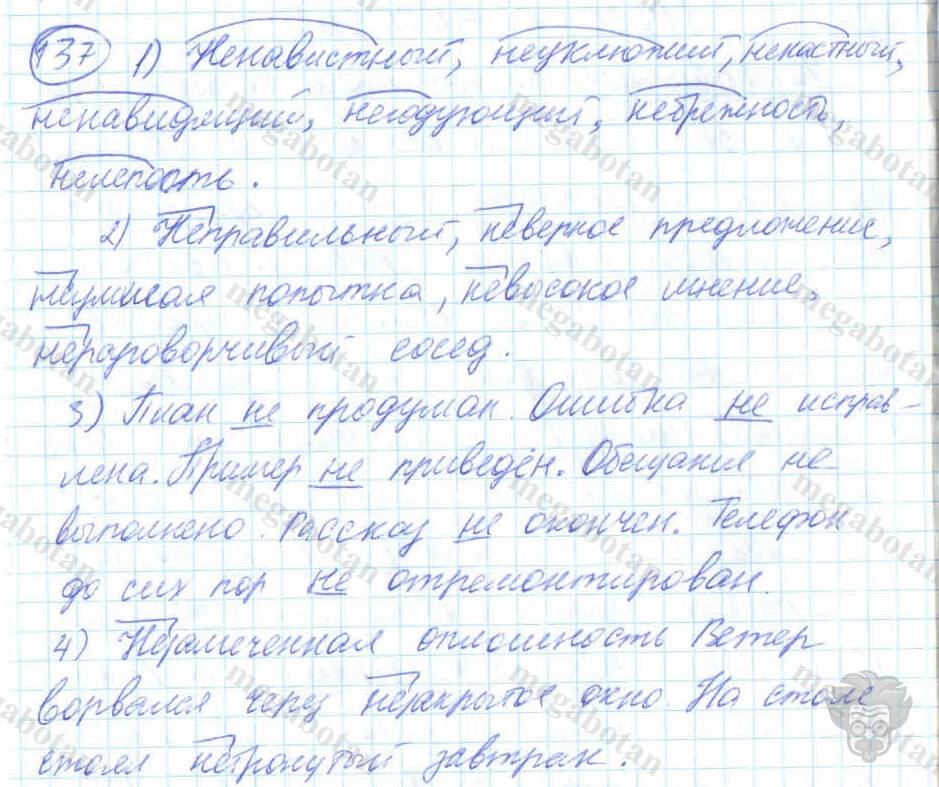 137 1) Ненавистный, неуклюжий, ненастный,
ненавидящий, негодующий, небрежность,
нелепость.
2) Неправильный, неверное предложение,
неумелая попытка, невысокое мнение,
неразговорчивый сосед.
3) План не продуман. Ошибка не исправ-
лена. Пример не приведён. Обещание не
выполнено. Рассказ не окончен. Телефон
до сих пор не отремонтирован.
4) Незамеченная оплошность Ветер
ворвался через незакрытое окно. На столе
стоял нетронутый завтрак.
megabotan